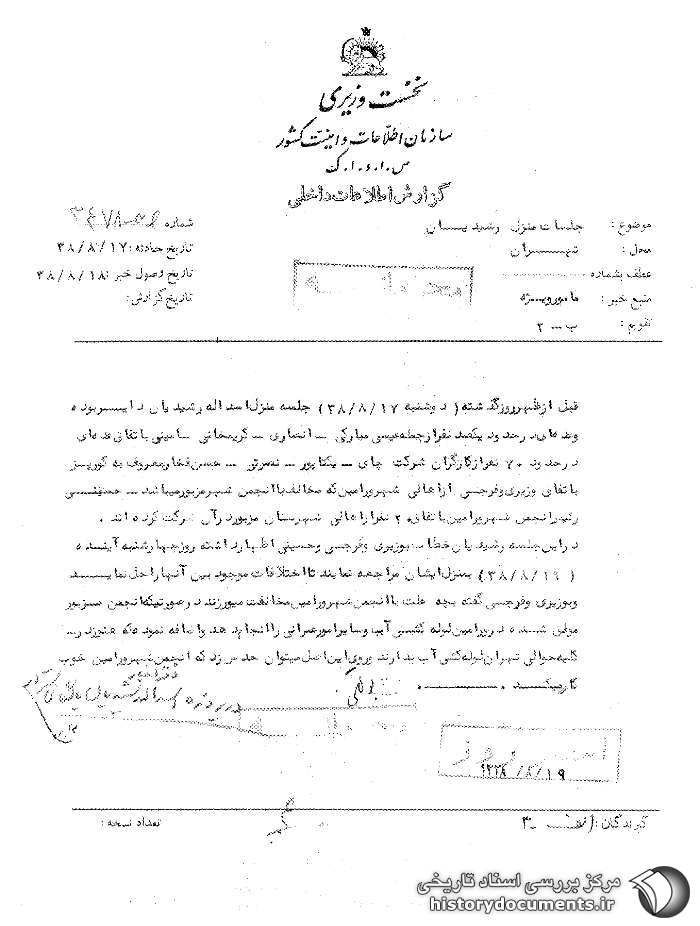 نخست وزیری
سازمان اطلاعات و امنیت کشور
س.ا.و.ا.ک
گزارش اطلاعات داخلی
موضوع : جلسات منزل رشیدیان
محل : تهران
عطف بشماره
منبع خبر : مامور ویژه
تقویم : ب - ۲
شماره
تاریخ حادثه : ۳۸/۸/۱۷
تاریخ وصول خبر : ۳۸/۸/۱۸
تاریخ گزارش :
محرمانه
قبل از ظهر روز گذشته ( دوشنبه ۳۸/۸/۱۷ ) جلسه منزل اسداله رشیدیان دایر بوده
وعده‌ای در حدود یکصد نفر از جمله عیسی مبارکی - انصاری - کریمخانی - امینی باتفاق عده‌ای
در حدود ۷۰ نفر از کارگران شرکت چای - یکتاپور - نصرتی - حسن فخار معروف به
باتفاق وزیری و فرجسی از اهالی شهر ورامین که مخالف با انجمن شهر مزبور میباشد - حسینی
رئیس انجمن شهر ورامین باتفاق ۲ نفر از اهالی شهرستان مزبور در آن شرکت کرده اند .
در این جلسه رشیدیان خطاب بوزیری و فرجسی و حسینی اظهار داشته روز چهارشنبه آینده
( ۳۸/۸/۱۹ ) بمنزل ایشان مراجعه نمایند تا اختلافات موجود بین آنها را حل نماید
و بوزیری و فرجسی گفته بچه علت با انجمن شهر ورامین مخالفت میورزند در صورتیکه انجمن مزبور
موفق شده در ورامین لوله کشی آب و سایر امور عمرانی را انجام دهد و اضافه نموده که هنوز در
کلیه حوالی تهران لوله کشی آب ندارند و روی این اصل میتوان حدس زد که انجمن شهر ورامین خوب
کار میکند
در پرونده اسداله رشیدیان
۱۳۳۸/۸/۱۹
گیرندگان :
تعداد نسخه :
مرکز بررسی اسناد تاریخی
historydocuments.ir